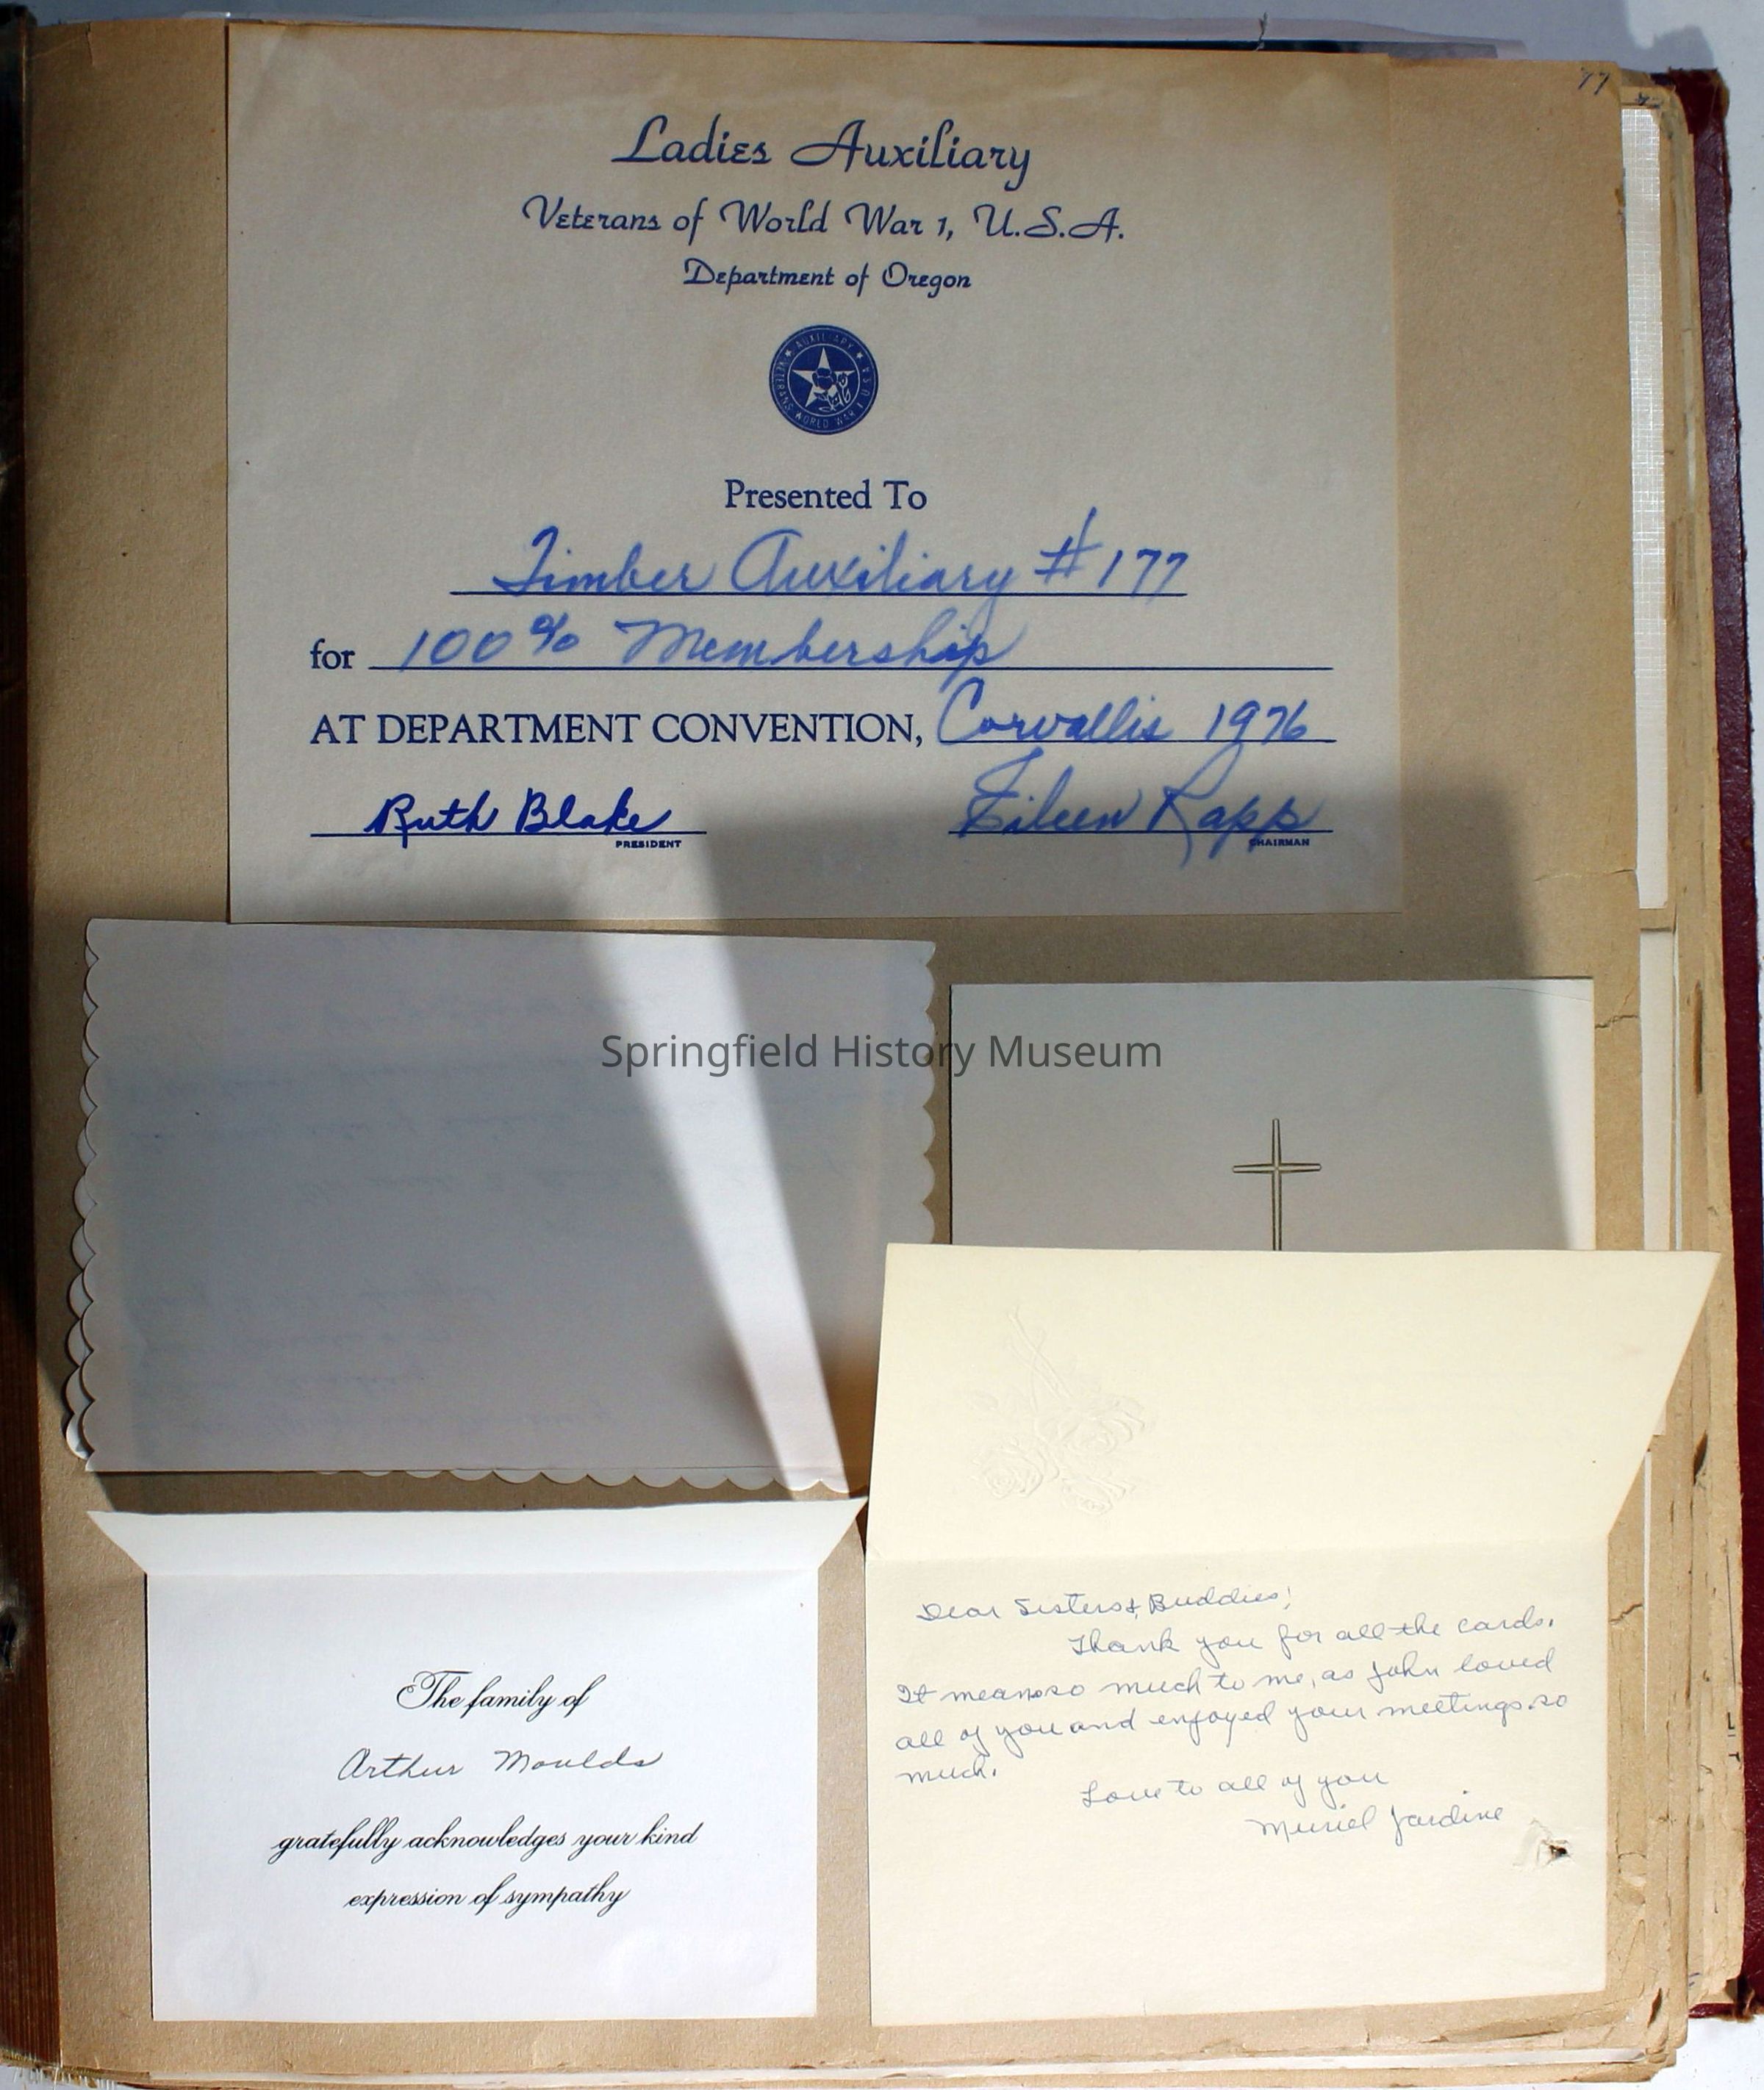 77
Ladies Auxiliary
Veterans of World War 1, U.S.A.
Department of Oregon
AUXILIARY
VETERANS WORLD WAR I U.S.A.
Presented To
Timber Auxiliary # 177
for 100% Membership
AT DEPARTMENT CONVENTION, Corvallis 1976
Ruth Blake Eileen Rapp
PRESIDENT CHAIRMAN
Springfield History Museum
The family of
Arthur Moulds
gratefully acknowledges your kind
expression of sympathy
Dear Sisters & Buddies!
Thank you for all the cards.
It means so much to me, as John loved
all of you and enjoyed your meetings so
much.
Love to all of you
Muriel Jardine